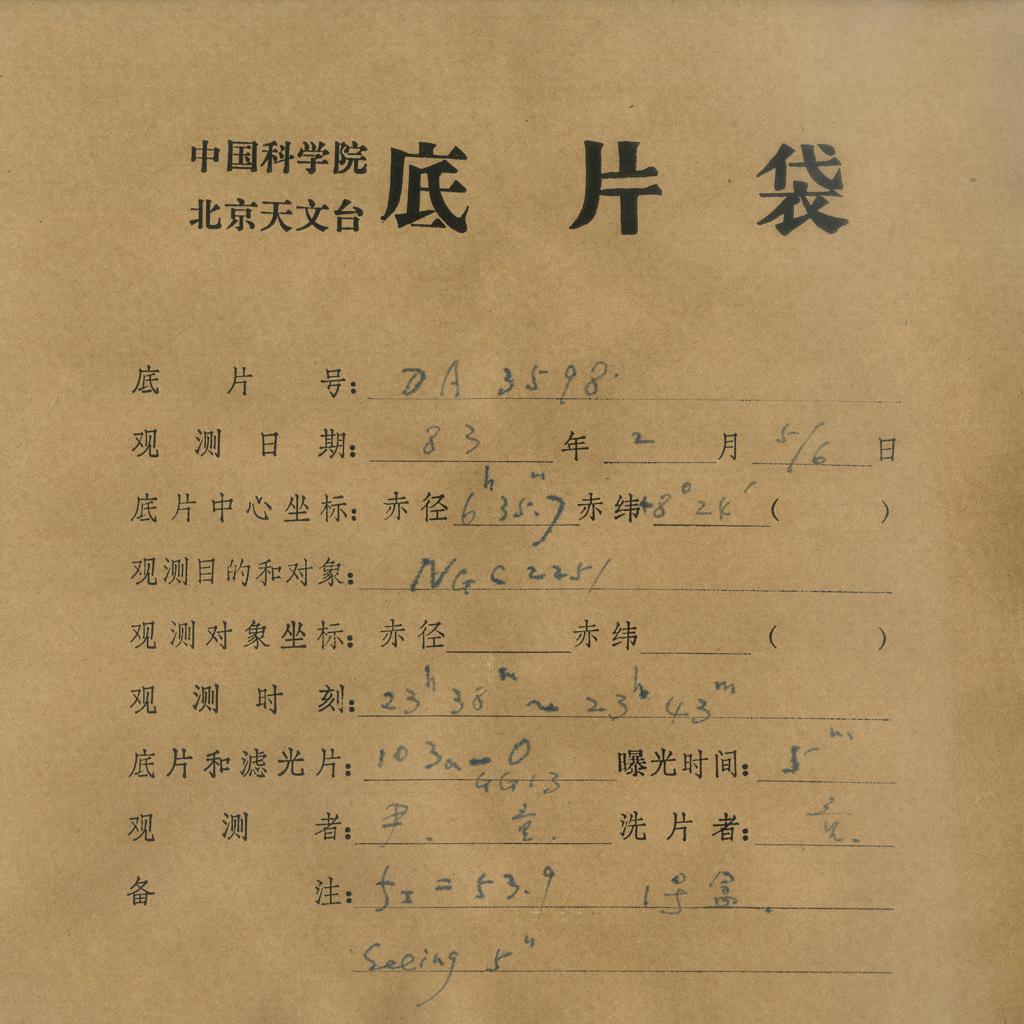 中国科学院
北京天文台
底片袋
底片号: DA 3598.
观测日期: 83 年 2 月 5/6 日
底片中心坐标: 赤径 6h 35m.7 赤纬 +8° 24′ ( )
观测目的和对象: NGC 2251
观测对象坐标: 赤径 赤纬 ( )
观测时刻: 23h 38m ~ 23h 43m
底片和滤光片: 103a-O 曝光时间: 5m
GG13
观测者: 尹. 洗片者:
备注: fI = 53.9 1号盒.
Seeing 5″